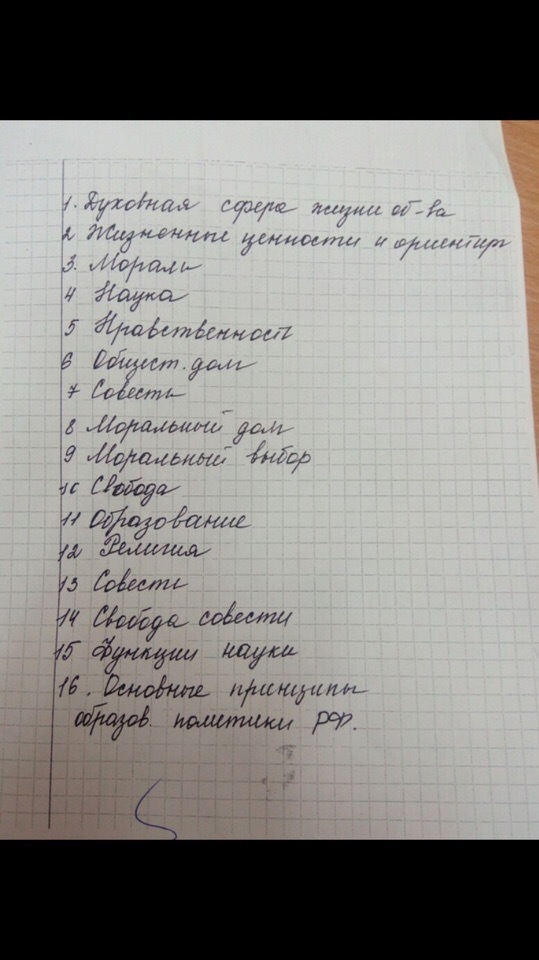 1. Духовная сфера жизни об-ва
2 Жизненные ценности и ориентир
3. Мораль
4 Наука
5 Нравственность
6 Общест. долг
7 Совесть
8 Моральный долг
9 Моральный выбор
10 Свобода
11 Образование
12 Религия
13 Совесть
14 Свобода совести
15 Функции науки
16. Основные принципы
образов. политики РФ.